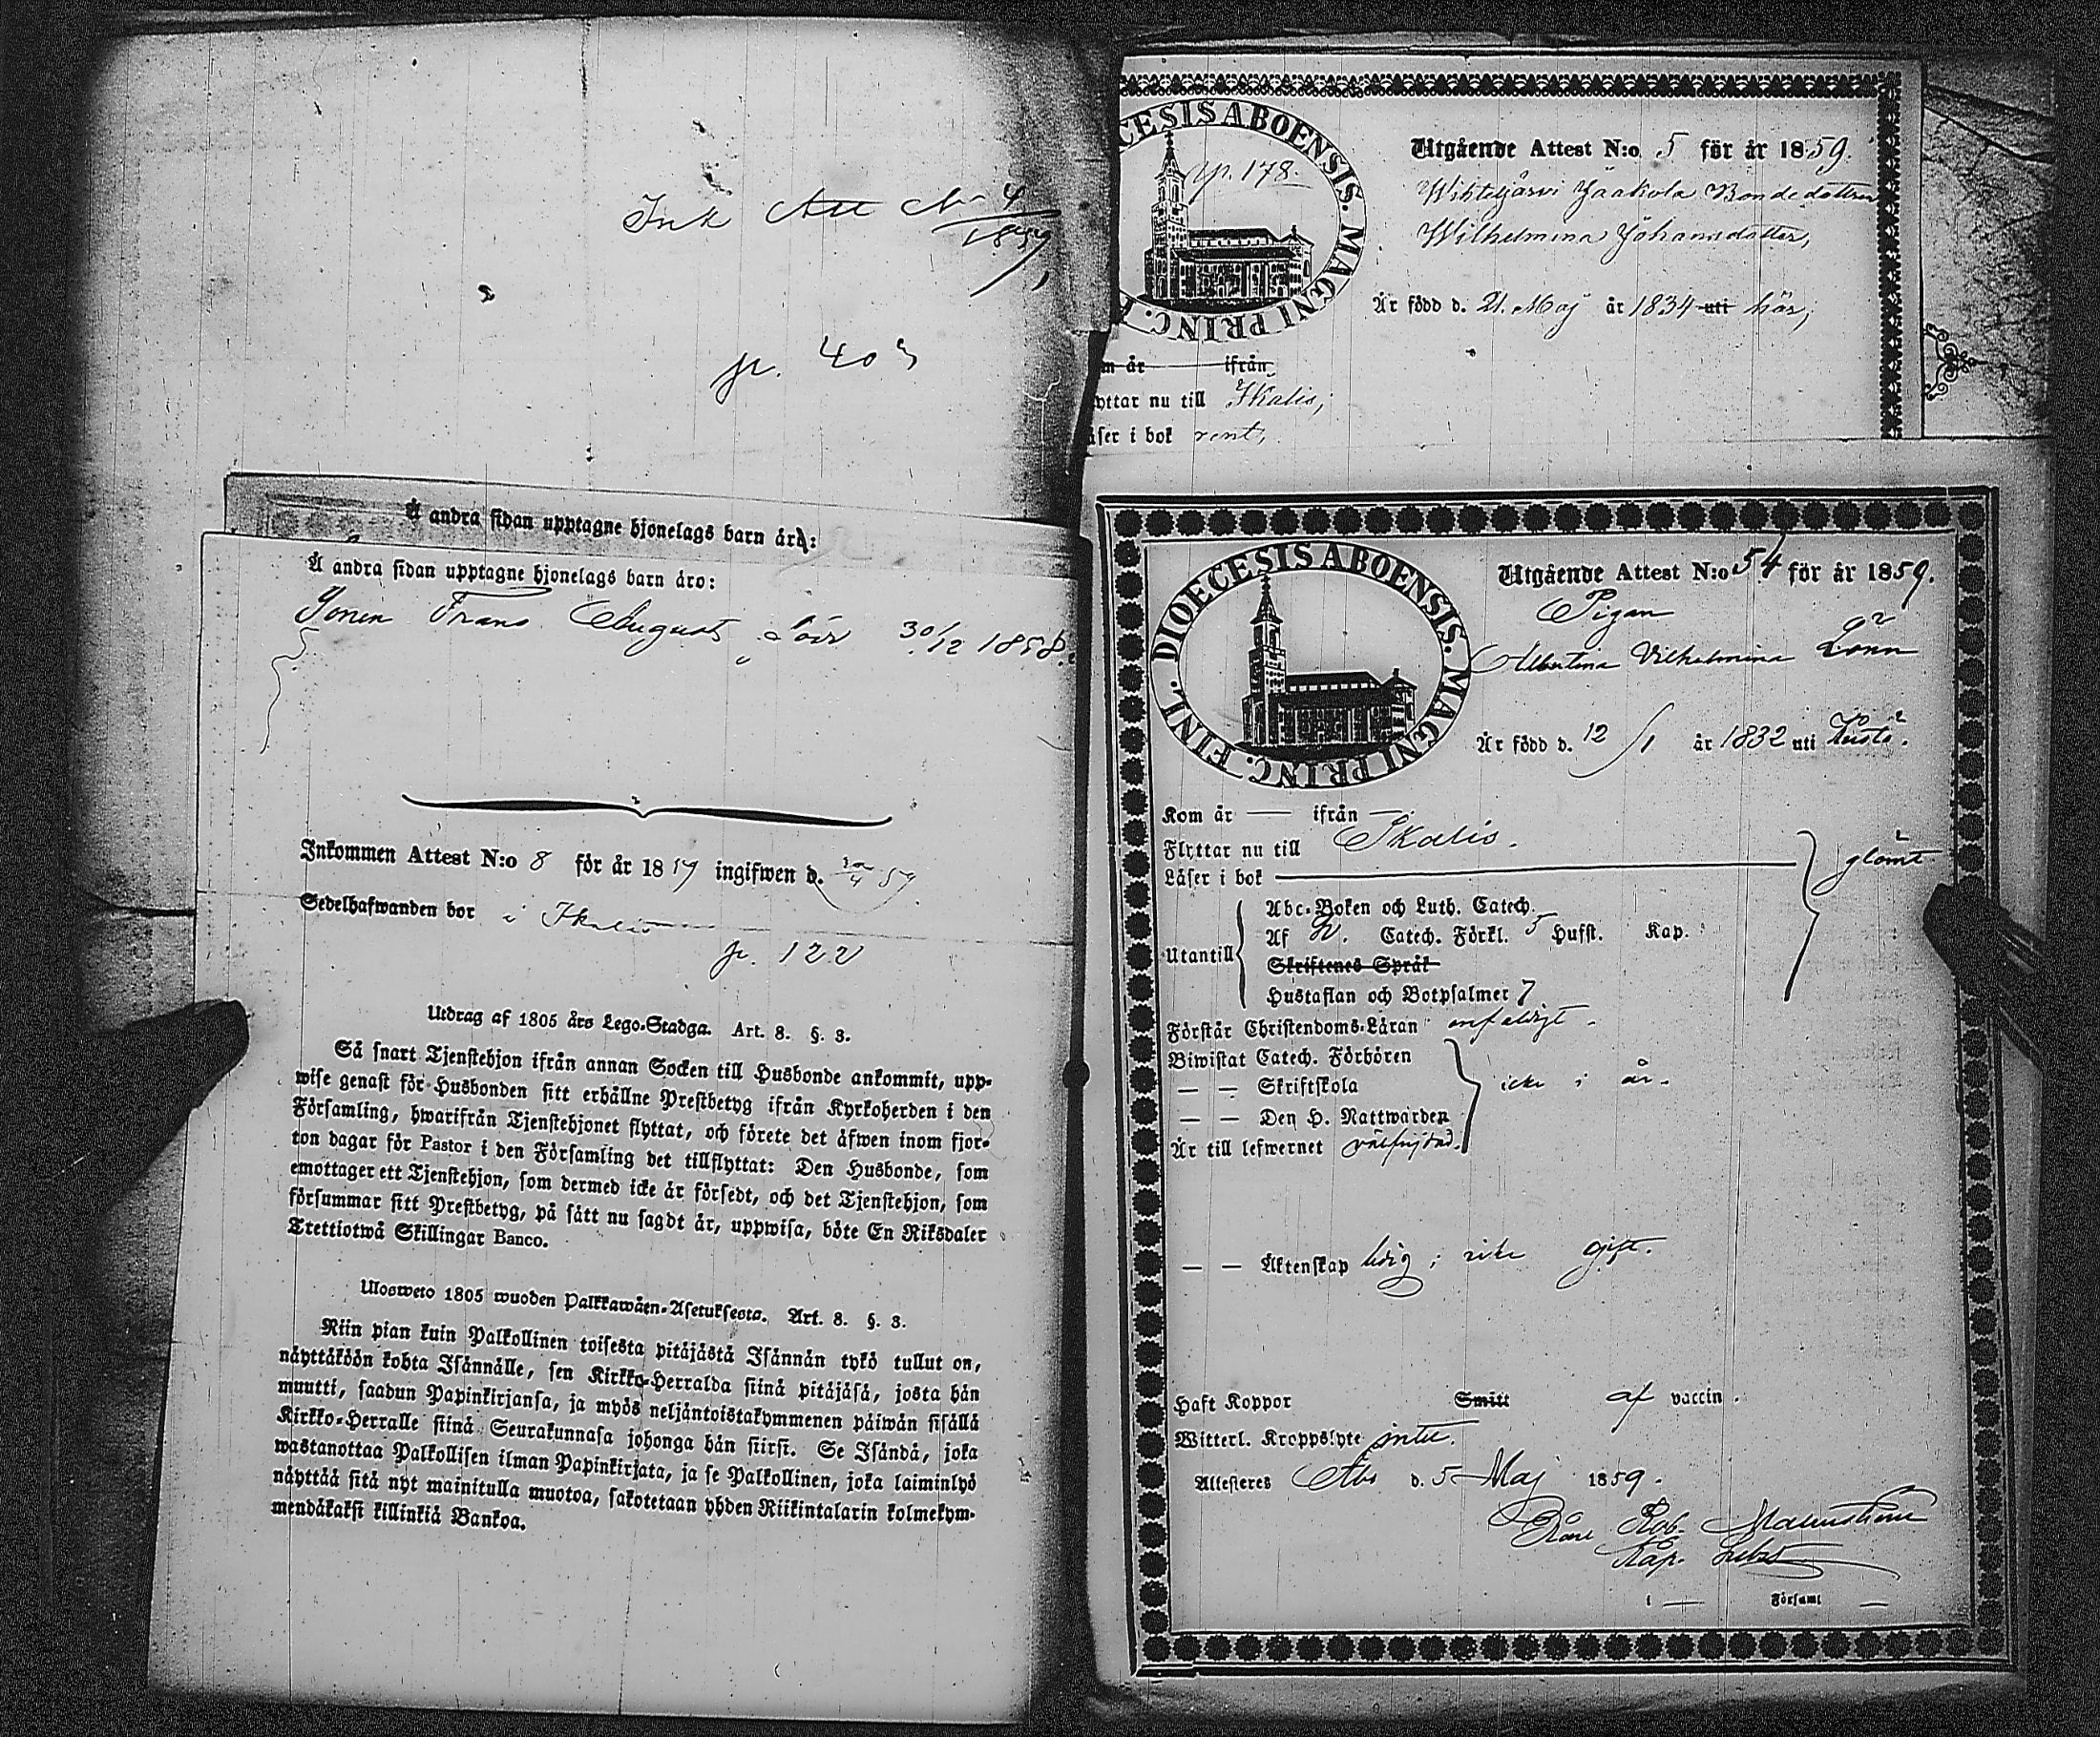 Ink Att No 4
1859
p. 403
Å andra sidan upptagne hjonelags barn äro:
Å andra sidan upptagne hjonelags barn äro:
Sonen Frans August, född 30/12 1858.
Inkommen Attest N:o 8 för år 1859 ingifwen d. 59
Sedelhafwanden bor i Ikalis
p. 122
Utdrag af 1805 års Lego-Stadga. Art. 8. §. 3.
Så snart Tjenstehjon ifrån annan Socken till Husbonde ankommit, upp-
wise genast för Husbonden sitt erhållne Prestbetyg ifrån Kyrkoherden i den
Församling, hwarifrån Tjenstehjonet flyttat, och förete det äfwen inom fjor-
ton dagar för Pastor i den Församling det tillflyttat: Den Husbonde, som
emottager ett Tjenstehjon, som dermed icke är försedt, och det Tjenstehjon, som
försummar sitt Prestbetyg, på sätt nu sagdt är, uppwisa, böte En Riksdaler
Trettiotwå Skillingar Banco.
Ulosweto 1805 wuoden Palkkawäen-Asetuksesta. Art. 8. §. 3.
Niin pian kuin Palkollinen toisesta pitäjästä Isännän tykö tullut on,
näyttäköön kohta Isännälle, sen Kirkko-Herralda siinä pitäjäsä, josta hän
muutti, saadun Papinkirjansa, ja myös neljäntoistakymmenen päiwän sisällä
Kirkko-Herralle siinä Seurakunnasa johonga hän siirsi. Se Isändä, joka
wastanottaa Palkollisen ilman Papinkirjata, ja se Palkollinen, joka laiminlyö
näyttää sitä nyt mainitulla muotoa, sakotetaan yhden Riikintalarin kolmekym-
mendäkaksi killinkiä Bankoa.
CESIS ABOENSIS. MAGNI PRINC. F
p. 178.
Utgående Attest N:o 5 för år 1859.
Wihteljärvi Jaakola Bondedottren
Wilhelmina Johansdotter,
Är född d. 21. Maj år 1834 uti här,
m år ifrån
yttar nu till Ikalis,
äser i bok rent,
DIOECESIS ABOENSIS. MAGNI PRINC. FINL.
Utgående Attest N:o 54 för år 1859.
Pigan
Albertina Vilhelmina Lönn
Är född d. 12/1 år 1832 uti
Kom år — ifrån —
Flyttar nu till Ikalis.
Läser i bok
glömt
Utantill
Abc-Boken och Luth. Catech.
Af Catech. Förkl. 5 Hufst. Kap.
Skriftenes Språk
Hustaflan och Botpsalmer 7
Förstår Christendoms-Läran enfaldigt.
Biwistat Catech. Förhören
— — Skriftskola
icke i år.
— — Den H. Nattwarden
Är till lefwernet välfrejdad.
— — Äktenskap ledig; icke gift.
Haft Koppor Smitt af vaccin.
Witterl. Kroppslyte intet.
Attesteres Åbo d. 5 Maj 1859.
Rob. Malmström
Kap.
i — Församl —